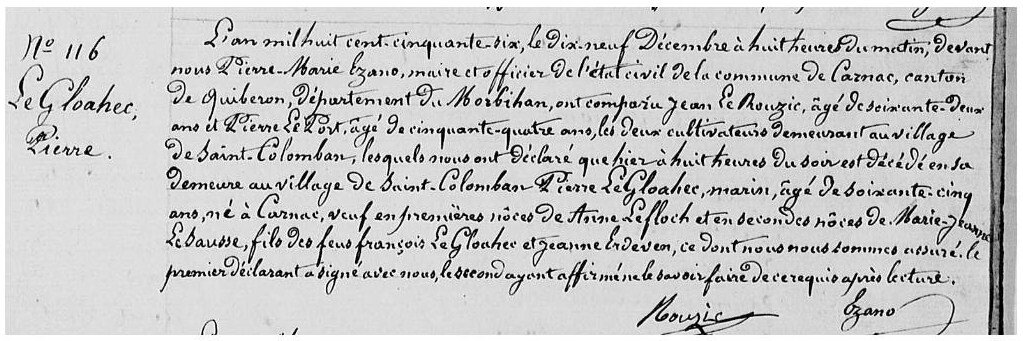 No 116
Le Gloahec,
Pierre.
L'an mil huit cent-cinquante-six, le dix-neuf Décembre à huit heures du matin, devant
nous Pierre-Marie Ezano, maire et officier de l'état civil de la commune de Carnac, canton
de Quiberon, département du Morbihan, ont comparu Jean Le Rouzic, âgé de soixante-deux
ans et Pierre Le Port, âgé de cinquante-quatre ans, les deux cultivateurs demeurant au village
de Saint-Colomban, lesquels nous ont déclaré que hier à huit heures du soir est décédé en sa
demeure au village de Saint-Colomban Pierre Le Gloahec, marin, âgé de soixante-cinq
ans, né à Carnac, veuf en premières nôces de Anne Lefloch et en secondes nôces de Marie-Jeanne
Lesausse, fils des feus françois Le Gloahec et Jeanne Erdeven, ce dont nous nous sommes assuré. le
premier déclarant a signé avec nous, le second ayant affirmé ne le savoir faire de ce requis après lecture.
Rouzic Ezano